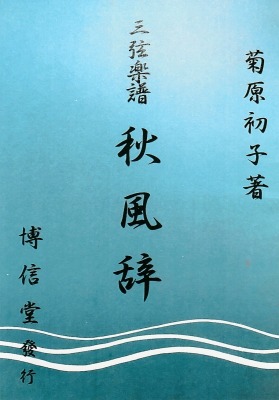 菊原初子著
三弦楽譜
秋風辞
博信堂發行